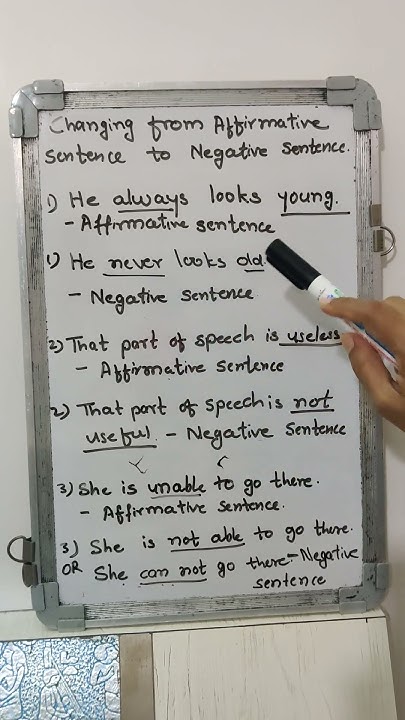 Changing from Affirmative
Sentence to Negative Sentence.
1) He always looks young.
- Affirmative sentence
1) He never looks old
- Negative Sentence
2) That part of speech is useless
- Affirmative Sentence
2) That part of speech is not
useful. - Negative Sentence
3) She is unable to go there.
- Affirmative Sentence.
3) She is not able to go there.
OR She can not go there - Negative
sentence